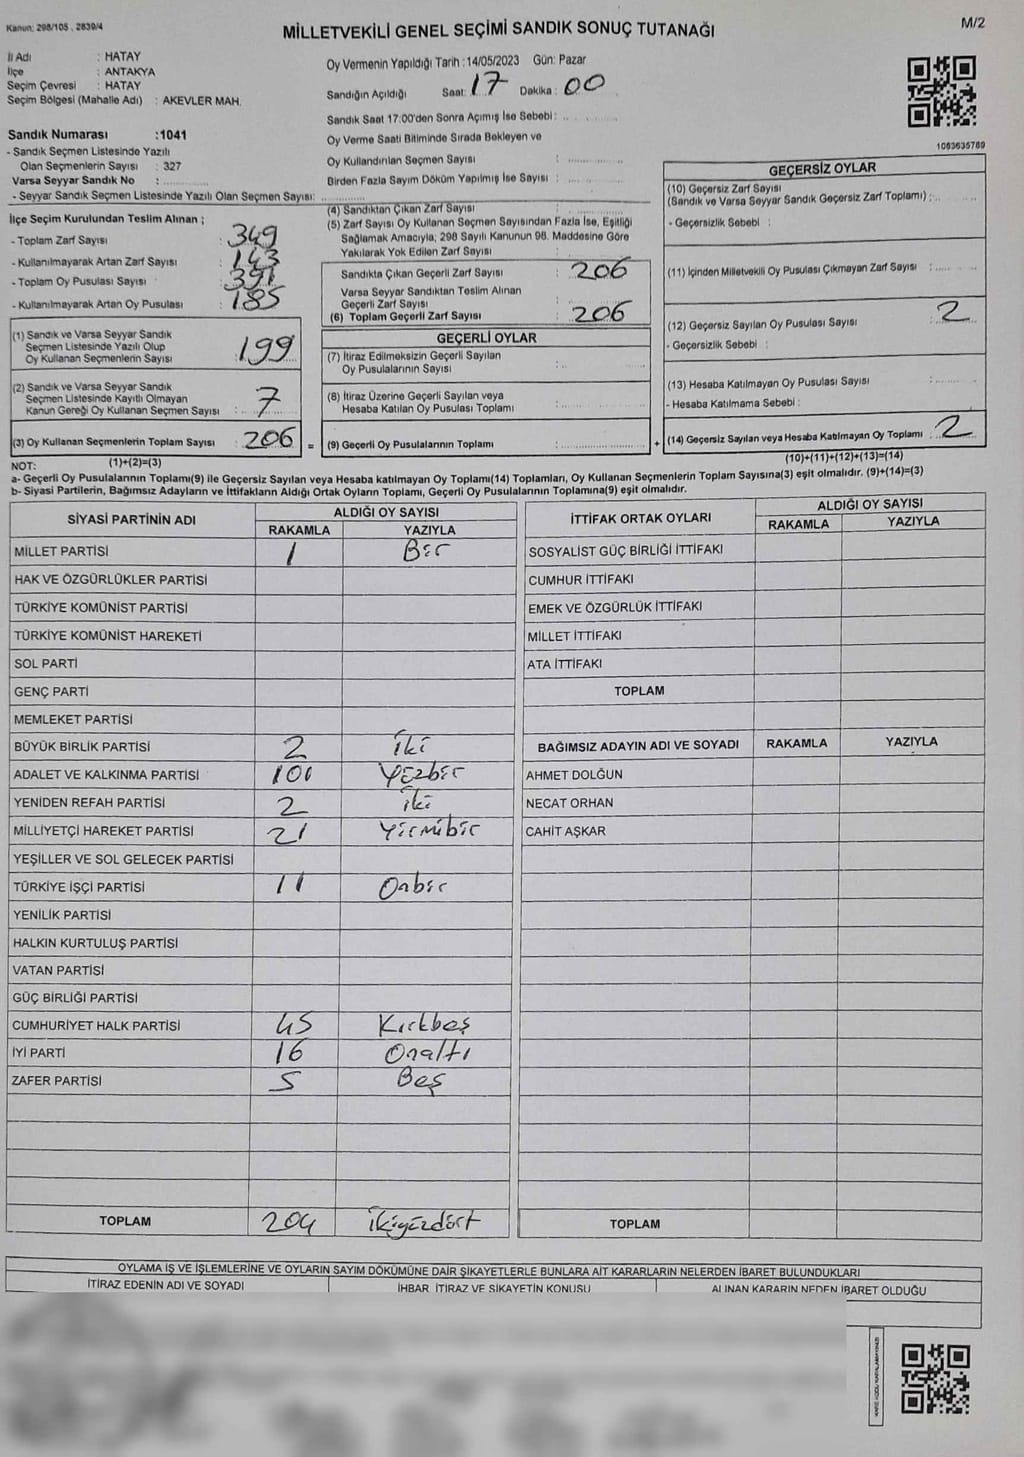 Kanun: 298/105 , 2839/4
MİLLETVEKİLİ GENEL SEÇİMİ SANDIK SONUÇ TUTANAĞI
M/2
İl Adı : HATAY
İlçe : ANTAKYA
Seçim Çevresi : HATAY
Seçim Bölgesi (Mahalle Adı) : AKEVLER MAH.
Oy Vermenin Yapıldığı Tarih :14/05/2023 Gün: Pazar
Sandığın Açıldığı Saat: 17 Dakika: 00
Sandık Saat 17:00'den Sonra Açımış İse Sebebi :
Sandık Numarası :1041
- Sandık Seçmen Listesinde Yazılı
Olan Seçmenlerin Sayısı : 327
Varsa Seyyar Sandık No :
- Seyyar Sandık Seçmen Listesinde Yazılı Olan Seçmen Sayısı:
Oy Verme Saati Bitiminde Sırada Bekleyen ve
Oy Kullandırılan Seçmen Sayısı :
Birden Fazla Sayım Döküm Yapılmış İse Sayısı :
1083635769
İlçe Seçim Kurulundan Teslim Alınan ;
- Toplam Zarf Sayısı : 349
- Kullanılmayarak Artan Zarf Sayısı : 143
- Toplam Oy Pusulası Sayısı : 391
- Kullanılmayarak Artan Oy Pusulası : 185
(1) Sandık ve Varsa Seyyar Sandık
Seçmen Listesinde Yazılı Olup
Oy Kullanan Seçmenlerin Sayısı : 199
(2) Sandık ve Varsa Seyyar Sandık
Seçmen Listesinde Kayıtlı Olmayan
Kanun Gereği Oy Kullanan Seçmen Sayısı : 7
(3) Oy Kullanan Seçmenlerin Toplam Sayısı : 206 =
(1)+(2)=(3)
(4) Sandıktan Çıkan Zarf Sayısı :
(5) Zarf Sayısı Oy Kullanan Seçmen Sayısından Fazla İse, Eşitliği
Sağlamak Amacıyla, 298 Sayılı Kanunun 98. Maddesine Göre
Yakılarak Yok Edilen Zarf Sayısı :
Sandıkta Çıkan Geçerli Zarf Sayısı : 206
Varsa Seyyar Sandıktan Teslim Alınan
Geçerli Zarf Sayısı :
(6) Toplam Geçerli Zarf Sayısı : 206
GEÇERLİ OYLAR
(7) İtiraz Edilmeksizin Geçerli Sayılan
Oy Pusulalarının Sayısı :
(8) İtiraz Üzerine Geçerli Sayılan veya
Hesaba Katılan Oy Pusulası Toplamı :
(9) Geçerli Oy Pusulalarının Toplamı : +
GEÇERSİZ OYLAR
(10) Geçersiz Zarf Sayısı
(Sandık ve Varsa Seyyar Sandık Geçersiz Zarf Toplamı) :
- Geçersizlik Sebebi :
(11) İçinden Milletvekili Oy Pusulası Çıkmayan Zarf Sayısı :
(12) Geçersiz Sayılan Oy Pusulası Sayısı : 2
- Geçersizlik Sebebi :
(13) Hesaba Katılmayan Oy Pusulası Sayısı :
- Hesaba Katılmama Sebebi :
(14) Geçersiz Sayılan veya Hesaba Katılmayan Oy Toplamı : 2
(10)+(11)+(12)+(13)=(14)
NOT:
a- Geçerli Oy Pusulalarının Toplamı(9) ile Geçersiz Sayılan veya Hesaba katılmayan Oy Toplamı(14) Toplamları, Oy Kullanan Seçmenlerin Toplam Sayısına(3) eşit olmalıdır. (9)+(14)=(3)
b- Siyasi Partilerin, Bağımsız Adayların ve İttifakların Aldığı Ortak Oyların Toplamı, Geçerli Oy Pusulalarının Toplamına(9) eşit olmalıdır.
SİYASİ PARTİNİN ADI ALDIĞI OY SAYISI
RAKAMLA YAZIYLA
MİLLET PARTİSİ 1 Bir
HAK VE ÖZGÜRLÜKLER PARTİSİ
TÜRKİYE KOMÜNİST PARTİSİ
TÜRKİYE KOMÜNİST HAREKETİ
SOL PARTİ
GENÇ PARTİ
MEMLEKET PARTİSİ
BÜYÜK BİRLİK PARTİSİ 2 İki
ADALET VE KALKINMA PARTİSİ 101 Yüzbir
YENİDEN REFAH PARTİSİ 2 İki
MİLLİYETÇİ HAREKET PARTİSİ 21 Yirmibir
YEŞİLLER VE SOL GELECEK PARTİSİ
TÜRKİYE İŞÇİ PARTİSİ 11 Onbir
YENİLİK PARTİSİ
HALKIN KURTULUŞ PARTİSİ
VATAN PARTİSİ
GÜÇ BİRLİĞİ PARTİSİ
CUMHURİYET HALK PARTİSİ 45 Kırkbeş
İYİ PARTİ 16 Onaltı
ZAFER PARTİSİ 5 Beş
TOPLAM 204 İkiyüzdört
İTTİFAK ORTAK OYLARI ALDIĞI OY SAYISI
RAKAMLA YAZIYLA
SOSYALİST GÜÇ BİRLİĞİ İTTİFAKI
CUMHUR İTTİFAKI
EMEK VE ÖZGÜRLÜK İTTİFAKI
MİLLET İTTİFAKI
ATA İTTİFAKI
TOPLAM
BAĞIMSIZ ADAYIN ADI VE SOYADI RAKAMLA YAZIYLA
AHMET DOLĞUN
NECAT ORHAN
CAHİT AŞKAR
TOPLAM
OYLAMA İŞ VE İŞLEMLERİNE VE OYLARIN SAYIM DÖKÜMÜNE DAİR ŞİKAYETLERLE BUNLARA AİT KARARLARIN NELERDEN İBARET BULUNDUKLARI
İTİRAZ EDENİN ADI VE SOYADI İHBAR, İTİRAZ VE ŞİKAYETİN KONUSU ALINAN KARARIN NEDEN İBARET OLDUĞU